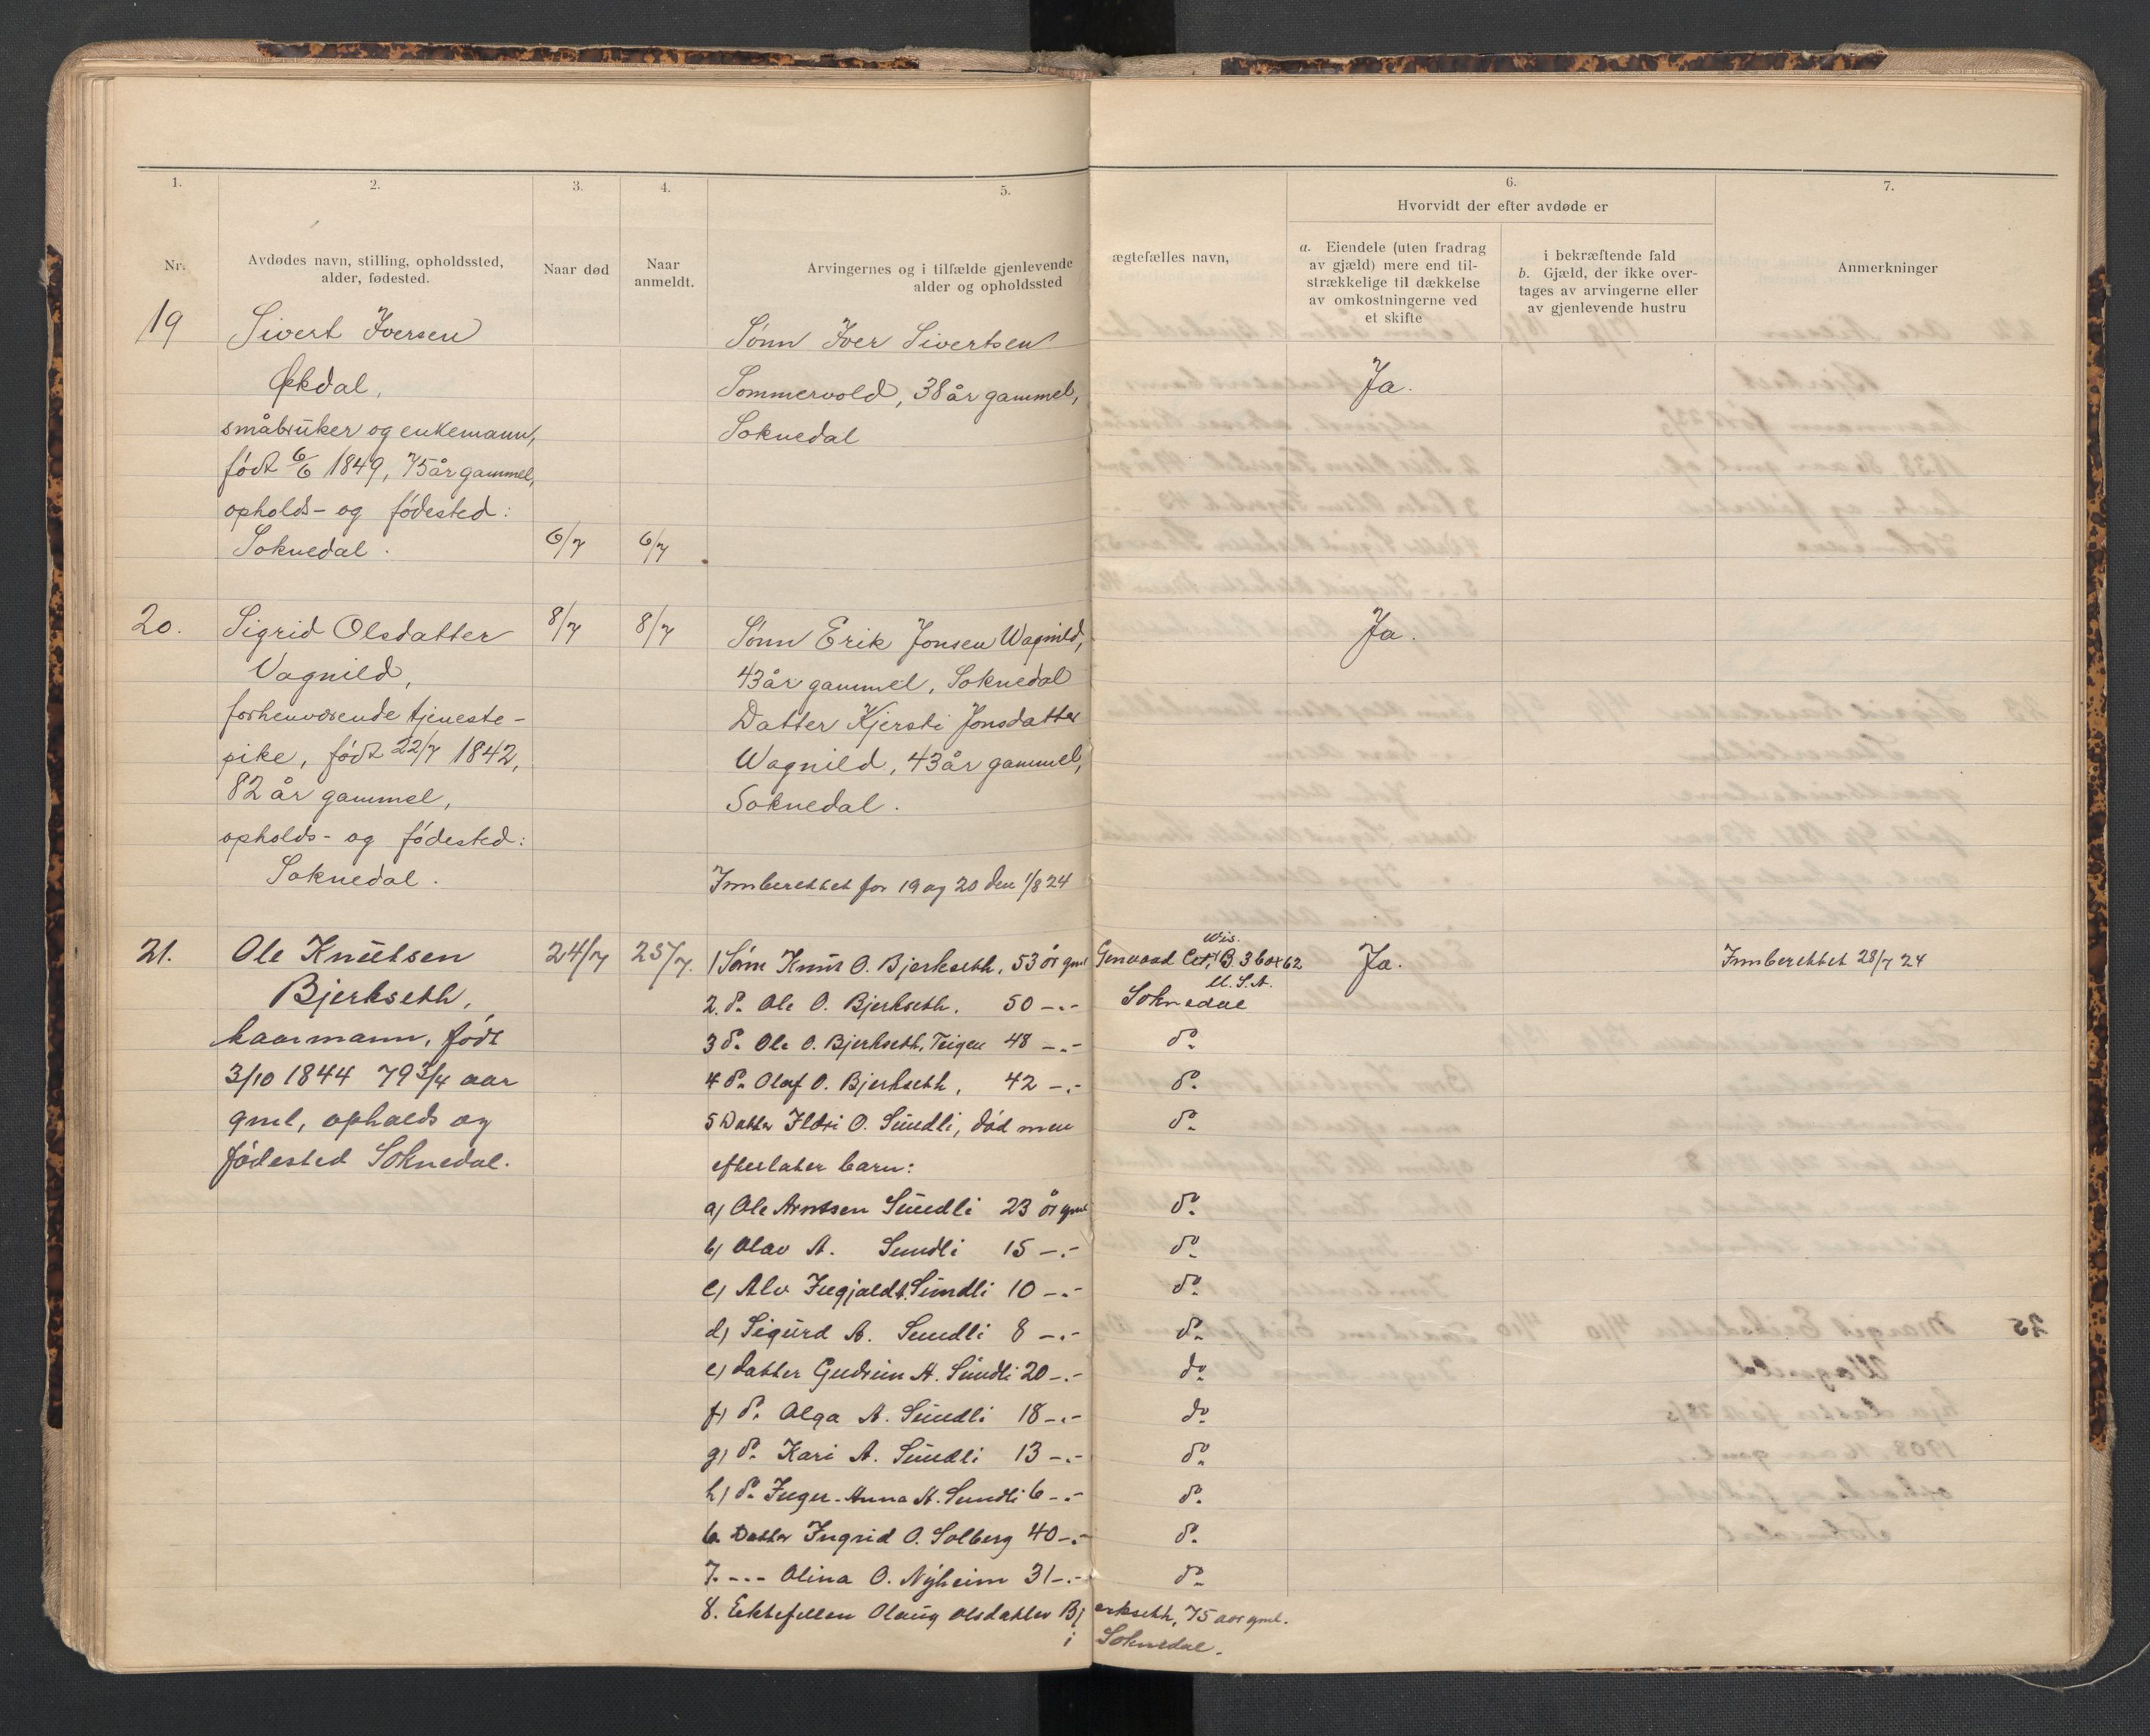 1. 2. 3. 4. 5. 6. 7.
Hvorvidt der efter avdøde er
Nr. Avdødes navn, stilling, opholdssted, alder, fødested. Naar død Naar anmeldt. Arvingernes og i tilfælde gjenlevende ægtefælles navn, alder og opholdssted
a. Eiendele (uten fradrag av gjæld) mere end tilstrækkelige til dækkelse av omkostningerne ved et skifte
i bekræftende fald b. Gjæld, der ikke overtages av arvingerne eller av gjenlevende hustru
Anmerkninger
19 Sivert Iversen
Økdal,
småbruker og enkemann,
født 6/6 1849, 75 år gammel,
opholds- og fødested:
Soknedal.
6/7 6/7
Sønn Iver Sivertsen
Sommervold, 38 år gammel,
Soknedal
Ja.
20. Sigrid Olsdatter
Vagnild,
forhenværende tjeneste-
pike, født 22/7 1842,
82 år gammel,
opholds- og fødested:
Soknedal.
8/7 8/7
Sønn Erik Jonsen Wagnild,
43 år gammel, Soknedal
Datter Kjersti Jonsdatter
Wagnild, 43 år gammel,
Soknedal.
Ja.
Innberettet for 19 og 20 den 1/8 24
21. Ole Knutsen
Bjerkseth,
kaarmann, født
3/10 1844 79 3/4 aar
gml, opholds og
fødested Soknedal.
24/7 25/7.
1 Sønn Knut O. Bjerkseth, 53 år gml
Wis.
B. 3 box 62
U.S.A.
Ja.
Innberettet 28/7 24
2. do Ole O. Bjerkseth, 50 -.- Soknedal
3 do Ole O. Bjerkseth, Teigen 48 -.- do
4 do Olaf O. Bjerkseth, 42 -.- do
5 Datter Ildri O. Sundli, død men do
efterlater barn:
a) Ole Arntsen Sundli 23 år gml do
b) Olav A. Sundli 15 -.- do
c) Alv Ingjald A. Sundli 10 -.- do
d) Sigurd A. Sundli 8 -.- do
e) datter Gudrun A. Sundli 20 -.- do
f) do Olga A. Sundli 18 -.- do
g) do Kari A. Sundli 13 -.- do
h) do Inger-Anna A. Sundli 6 -.- do
6. Datter Ingrid O. Solberg 40 -.- do
7. -.- Olina O. Nyheim 31 -.- do
8. Ektefellen Olaug Olsdatter Bjerkseth, 75 aar gml.
i Soknedal.